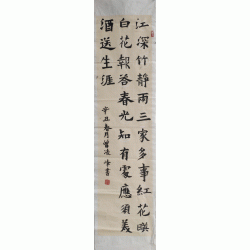 江深竹静两三家多事红花映
白花報答春光知有處應須美
酒送生涯
辛丑春月